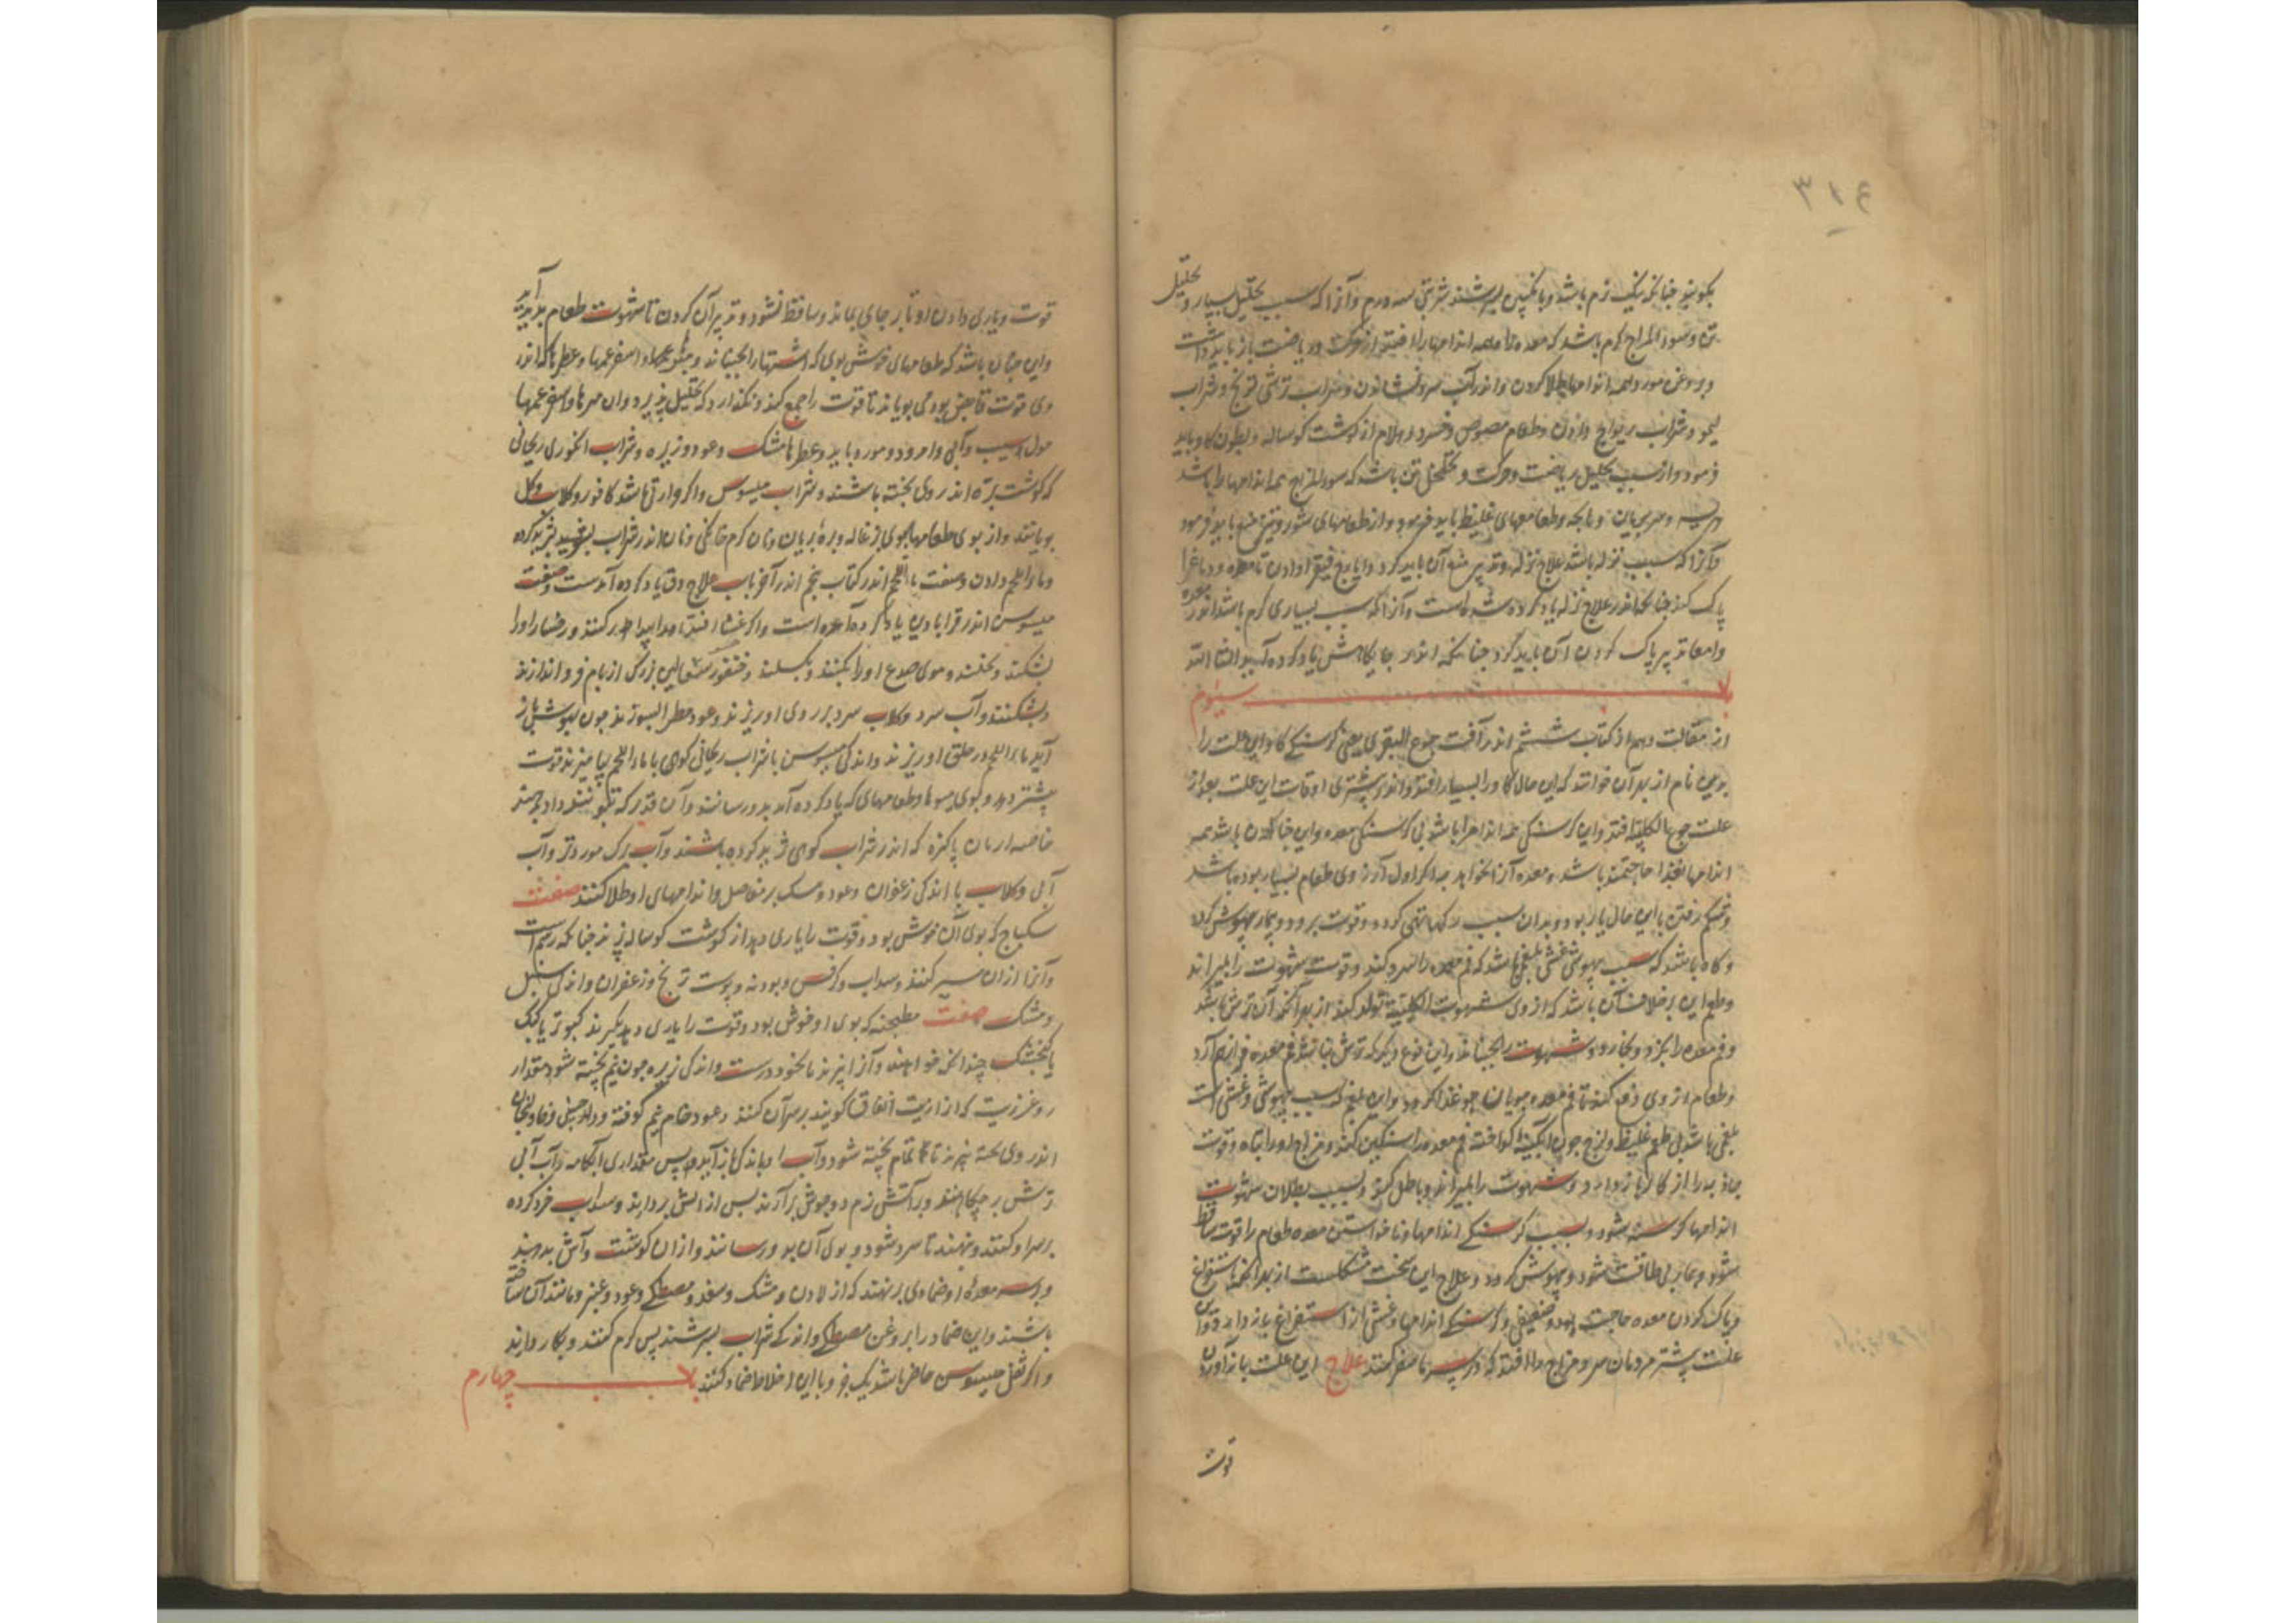 ۳۱۴
بکوبند چنانکه نیک نرم باشد و بانگبین بسرشند شربتی سه درم و آنرا که سبب تحلیل بسیار و تحلیل
تن و سوء المزاج گرم باشد که معده را همه اندامها را افتد از حرکت و ریاضت باز باید داشت
و بروغن مورد همه اندامها طلا کردن و اندر آب سرد نشاندن و شراب ترشی ترنج و شراب
لیمو و شراب ریواج دادن و طعام مصوص و فسرده و هلام از کوشت کوساله و بطون کاو باید
فرمود و از سبب تحلیل ریاضت و حرکت و تخلخل تن باشد که سوء المزاج همه اندامها را باشد
هریسه و سر بریان و پاچه و طعامهای غلیظ باید فرمود و از طعامهای شور و تیز منع باید فرمود
و آنرا که سبب نزله باشد علاج نزله و تدبیر منع آن باید کرد و ایارج فیقرا دادن تا معده و دماغ را
پاک کند چنانکه اندر علاج نزله یاد کرده شده است و آنرا که سبب بسیاری کرم باشد اندر معده
و امعا تدبیر پاک کردن آن باید کرد چنانکه اندر جایکاهش یاد کرده آید انشا الله
باب سیوم
از مقالت دهم از کتاب ششم اندر آفت جوع البقری یعنی کرسنکی کاو این علت را
بدین نام از بهر آن خوانند که این حال کاو را بسیار افتد و اندر بیشتری اوقات این علت بعد از
علت جوع الکلبی افتد و این کرسنکی همه اندامها باشد بی کرسنکی معده و این چنان بودن باشد همه
اندامها بغذا حاجتمند باشد و معده آنرا نخواهد بعد اکر اول آرزوی طعام بسیار بوده باشد
و شکم رفتن با این حال یار بود و بدان سبب رکها تهی کردد و قوت برود و بیمار بیهوش کردد
و کاه باشد که سبب بیهوشی غشی بلغمی باشد که فم معده را سرد کند و قوت شهوت را بمیراند
و طعم این بر خلاف آن باشد که از وی شهوت الکلبیه تولد کند از بهر آنکه آن ترش باشد
و فم معده را بکزد و بخارد و شهوت را بجنباند و این نوع دیکر که ترش نباشد فم معده فراهم آرد
و طعام از وی دفع کند تا فم معده جویان جو غذا کردد و این بلغم که سبب بیهوشی و غشی است
بلغمی باشد بی طعم غلیظ و لزج چون آبکینه کداخته فم معده را سنکین کند و مزاج او را تباه و قوت
جاذبه را از کار باز دارد و شهوت را بمیراند و باطل کند و بسبب بطلان شهوت
اندامها کرسنه شود و بسبب کرسنکی اندامها و ناخواستن معده طعام را قوت ساقط
شود و بیمار بی طاقت شود و بیهوش کردد و علاج این سخت مشکلست از بهر آنکه باستفراغ
و پاک کردن معده حاجت بود و ضعیفی و کرسنکی اندامها و غشی از استفراغ باز دارد و این
علت بیشتر مردمان سرد مزاج را افتد که در سرما سفر کنند علاج این علت باز آوردن
قوت
قوت و یاری دادن او تا بر جای بماند و ساقط نشود و تدبیر آن کردن تا شهوت طعام پدید آید
و این چنان باشد که طعامهای خوش بوی که اشتها را بجنباند و میوها و اسفرغمها و عطرها که اندر
وی قوت قابض بود می بویاند تا قوت را جمع کند و نکذارد که تحلیل پذیرد و ان میوها و اسفرغمها
چون سیب و آبی و امرود و مورد باید و عطرها مشک و عود و زیره و شراب انکوری ریحانی
که کوشت بره اندر وی پخته باشند و شراب میسوس و اکر حرارتی باشد کافور و کلاب و کل
بویانند و از بوی طعامها بوی بزغاله و بره بریان و نان کرم خانکی و نان اندر شراب ترید کرده
و ماء اللحم دادن و صفت ماء اللحم اندر کتاب پنجم اندر آخر باب علاج دق یاد کرده آمدست و صفت
میسوس اندر قرابادین یاد کرده آمده است و اکر غشی افتد
بشکنند و بخلند و موی صدغ او را بکنند و بکسلند و خنفور سفالین بزرک از بام فرو اندازند
و بشکنند و آب سرد و کلاب سرد بر روی او ریزند و عود مطرا بسوزند چون بهوش باز
آید ماء اللحم در حلق او ریزند و اندکی میسوسن با شراب ریحانی کوهی با ماء اللحم بیامیزند قوت
بیشتر دهد و بوی میوها و طعامهای که یاد کرده آمد بدو رسانند و آن قدر که بتوانند داد بدهند
خاصه از نان پاکیزه که اندر شراب کوهی ترید کرده باشند و آب برک مورد تر و آب
آبی و کلاب با اندکی زعفران و عود و مسک بر مفاصل و اندامهای او طلا کنند صفت
سکباج که بوی آن خوش بود و قوت را یاری دهد از کوشت کوساله پزند چنانکه رسم است
و آنرا از ان سیر کنند و سداب و کرفس و پودنه و پوست ترنج و زعفران و اندکی سنبل
و مشک صفت مطجنه که بوی او خوش بود و قوت را یاری دهد بکیرند کبوتر یا کبک
یا کنجشک چندانکه خواهند و آنرا بپزند با نخود درست و اندکی زیره چون نیم پخته شود مقدار
روغن زیت که آنرا زیت انفاق کویند بر سر آن کنند و عود خام نیم کوفته و دارچینی و خاولنجان
اندر وی بسته بپزند تا تمام پخته شود و آب او باندکی باز آید و پس مقداری آبکامه و آب آبی
ترش بر چکانند و بر آتش نرم دو جوش برآرند پس از آتش بردارند و سداب خرد کرده
بر سر او کنند و بنهند تا سرد شود و بوی آن بدو رسانند و از ان کوشت و آش بدهند
و بر سر معده او ضمادی برنهند که از لادن و مشک و سعد و مصطکی و عود و عنبر و مانند آن ساخته
باشند و این ضماد را بروغن مصطکی و اندکی شراب بسرشند پس کرم کنند و بکار دارند
و اکر ثفل میسوس حاضر باشد یک جزو با این اخلاط ضماد کنند باب چهارم